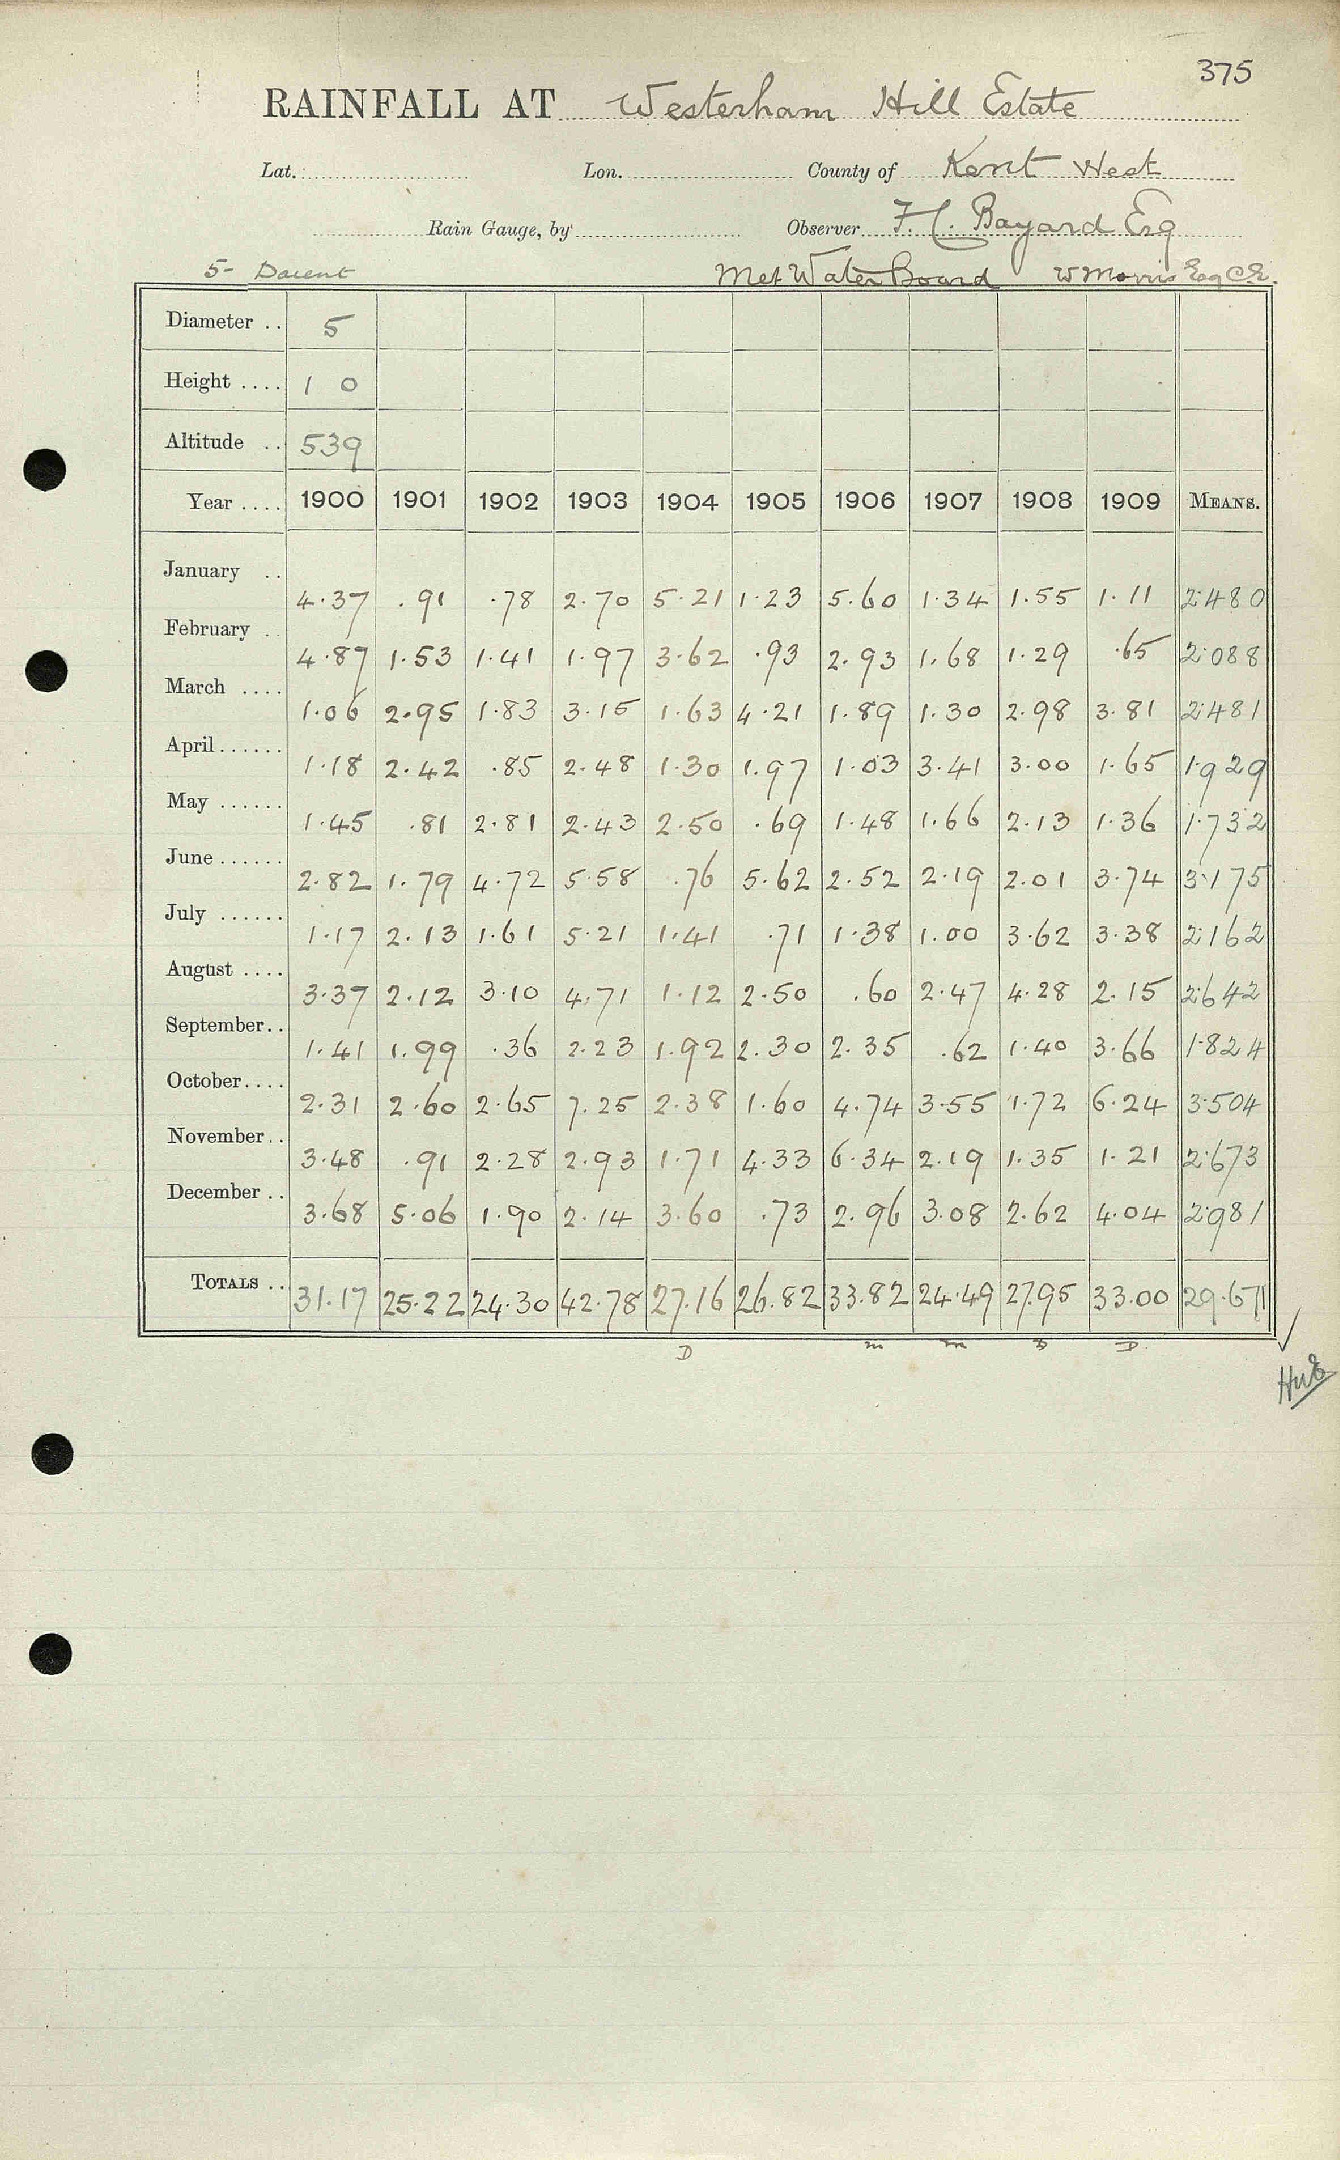 375
RAINFALL AT Westerham Hill Estate
Lat. Lon. County of Kent West
Rain Gauge, by Observer F. C. Bayard Esq
5- Darent Met Water Board W Morris Esq C.E.
Diameter .. 5
Height .... 1 0
Altitude .. 539
Year .... 1900 1901 1902 1903 1904 1905 1906 1907 1908 1909 MEANS.
January .. 4.37 .91 .78 2.70 5.21 1.23 5.60 1.34 1.55 1.11 2.480
February .. 4.87 1.53 1.41 1.97 3.62 .93 2.93 1.68 1.29 .65 2.088
March .... 1.06 2.95 1.83 3.15 1.63 4.21 1.89 1.30 2.98 3.81 2.481
April ...... 1.18 2.42 .85 2.48 1.30 1.97 1.03 3.41 3.00 1.65 1.929
May ...... 1.45 .81 2.81 2.43 2.50 .69 1.48 1.66 2.13 1.36 1.732
June ...... 2.82 1.79 4.72 5.58 .76 5.62 2.52 2.19 2.01 3.74 3.175
July ...... 1.17 2.13 1.61 5.21 1.41 .71 1.38 1.00 3.62 3.38 2.162
August .... 3.37 2.12 3.10 4.71 1.12 2.50 .60 2.47 4.28 2.15 2.642
September .. 1.41 1.99 .36 2.23 1.92 2.30 2.35 .62 1.40 3.66 1.824
October .... 2.31 2.60 2.65 7.25 2.38 1.60 4.74 3.55 1.72 6.24 3.504
November .. 3.48 .91 2.28 2.93 1.71 4.33 6.34 2.19 1.35 1.21 2.673
December .. 3.68 5.06 1.90 2.14 3.60 .73 2.96 3.08 2.62 4.04 2.981
TOTALS .. 31.17 25.22 24.30 42.78 27.16 26.82 33.82 24.49 27.95 33.00 29.671
D m m D D